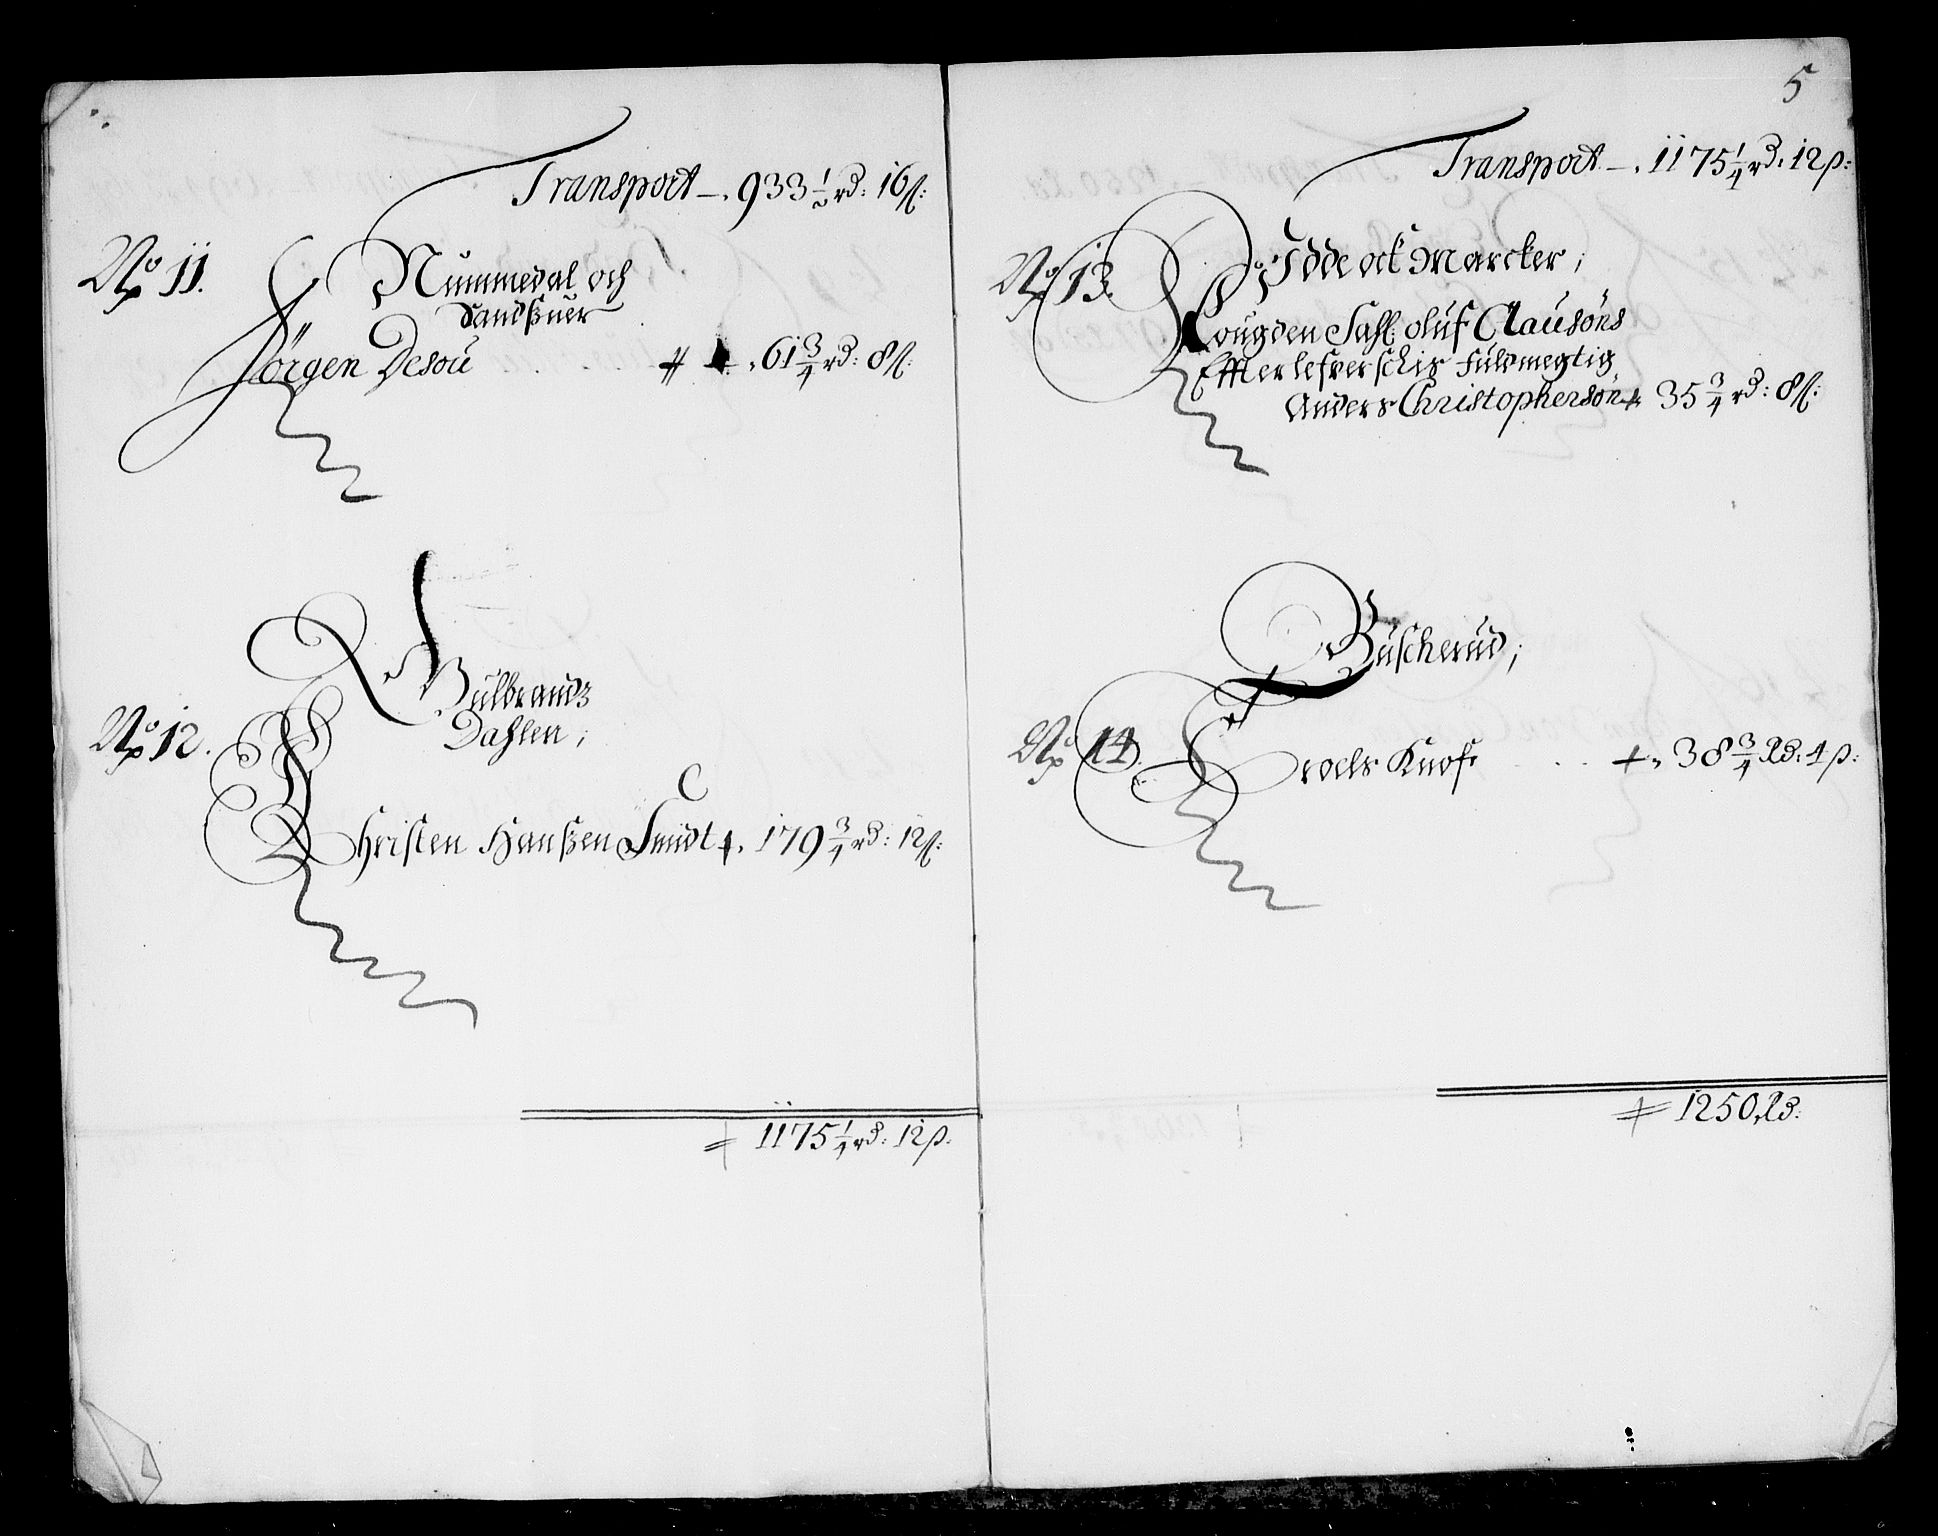 Transport —. 933 1/2 rd: 16 ß:
No 11.
Nummedal och
Sandßuer
Jörgen Desou . . . 61 3/4 rd: 8 ß:
Gulbrands
Dahlen;
No 12.
Christen Hanßen Smidt . 179 3/4 rd: 12 ß:
1175 1/4 rd: 12 ß.
5
Transport —. 1175 1/4 rd: 12 ß:
No 13.
Idde ock Marcker;
Fougden Sahl: oluf Clausöns
Effterlefverschis fuldmegtig
Anders Christophersön 35 3/4 rd: 8 ß:
Buscherud;
No 14.
Troels Knof . . . 38 3/4 Rd: 4 ß:
1250 Rd: